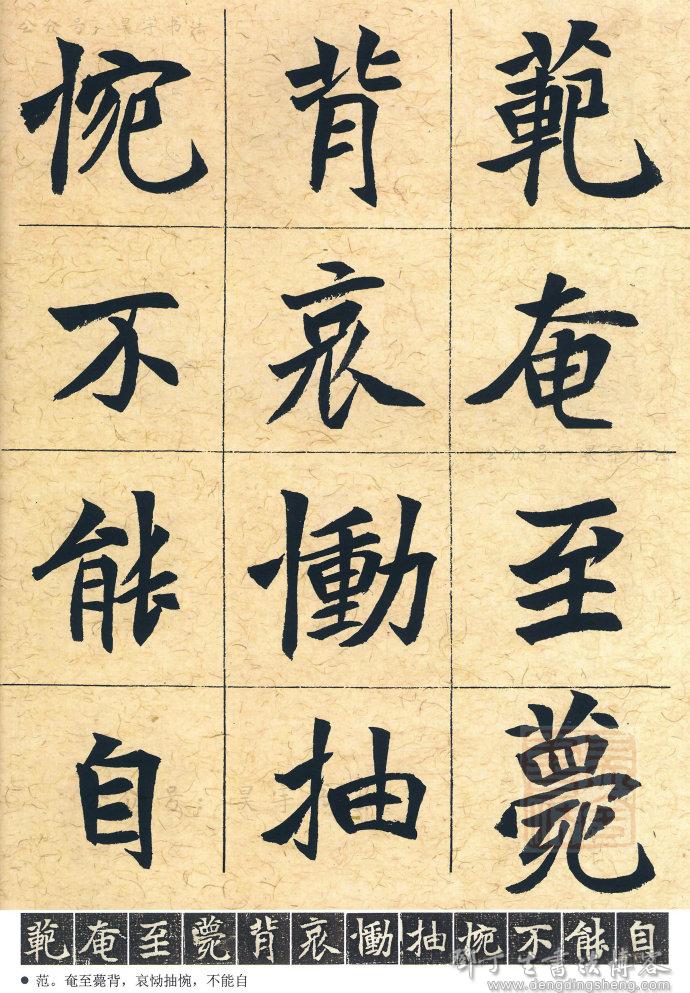 範奄至薨
背哀慟抽
惋不能自
範奄至薨背哀慟抽惋不能自
● 范。奄至薨背，哀恸抽惋，不能自
www.dengdingsheng.com